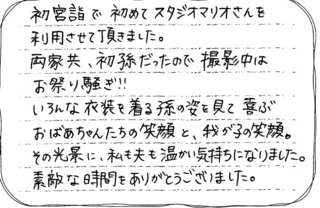 初宮詣で初めてスタジオマリオさんを
利用させて頂きました。
両家共、初孫だったので撮影中は
お祭り騒ぎ!!
いろんな衣装を着る孫の姿を見て喜ぶ
おばあちゃんたちの笑顔と、我が子の笑顔。
その光景に、私も夫も温かい気持ちになりました。
素敵な時間をありがとうございました。